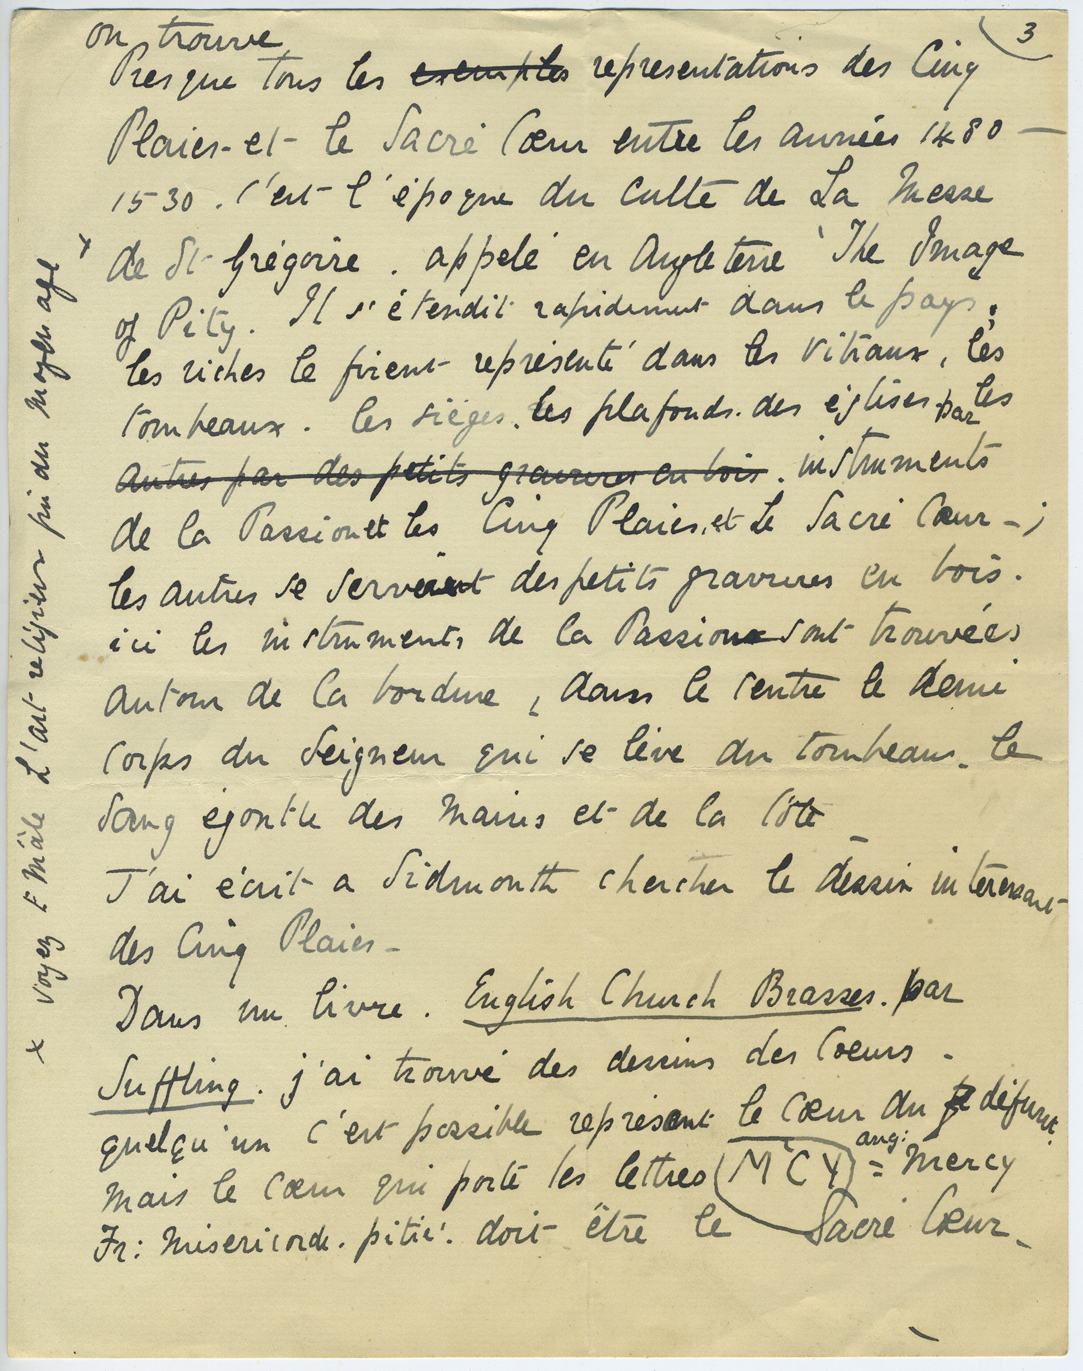 3
on trouve
Presque tous les exemples representations des Cinq
Plaies - et le Sacré Cœur entre les années 1480 -
1530. C'est l'époque du culte de La Messe
de St Grégoire. appelé en Angleterre 'The Image x
of Pity. Il s'étendit rapidement dans le pays;
les riches le firent représenté dans les vitraux, les
tombeaux. les sièges. les plafonds. des églises par les
autres par des petits gravures en bois. instruments
de la Passion et les Cinq Plaies, et le Sacré Cœur - ;
les autres se servirent des petits gravures en bois.
ici les instruments de la Passion sont trouvées
autour de la bordure, dans le centre le demi
corps du Seigneur qui se lève du tombeau. le
Sang egoutte des mains et de la Côté
J'ai écrit a Sidmouth chercher le dessin interessant
des Cinq Plaies -
Dans un livre. English Church Brasses. par
Suffling. j'ai trouvé des dessins des Cœurs -
quelqu'un c'est possible represent le Cœur du défunt.
mais le Cœur qui porte les lettres (MCY) ang: = Mercy
Fr: Misericorde. pitié. doit être le Sacré Cœur -
x voyez E Mâle L'art religieux fin du Moyen age